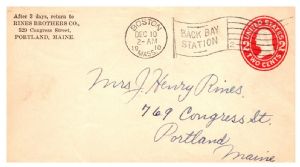 After 3 days, return to
RINES BROTHERS CO.,
529 Congress Street,
PORTLAND, MAINE.
BOSTON
DEC 10
2-AM
1910
MASS.
BACK BAY
STATION
UNITED STATES
2 TWO CENTS 2
Mrs J. Henry Rines,
769 Congress St.
Portland
Maine